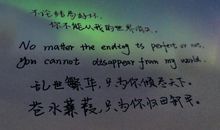 不论结局好坏,
你不能从我的世界消失.
No matter the ending is perfect or not,
You cannot disappear from my world.
乱世繁华,只为你倾尽天下.
苍水蒹葭,只为你归田卸甲.